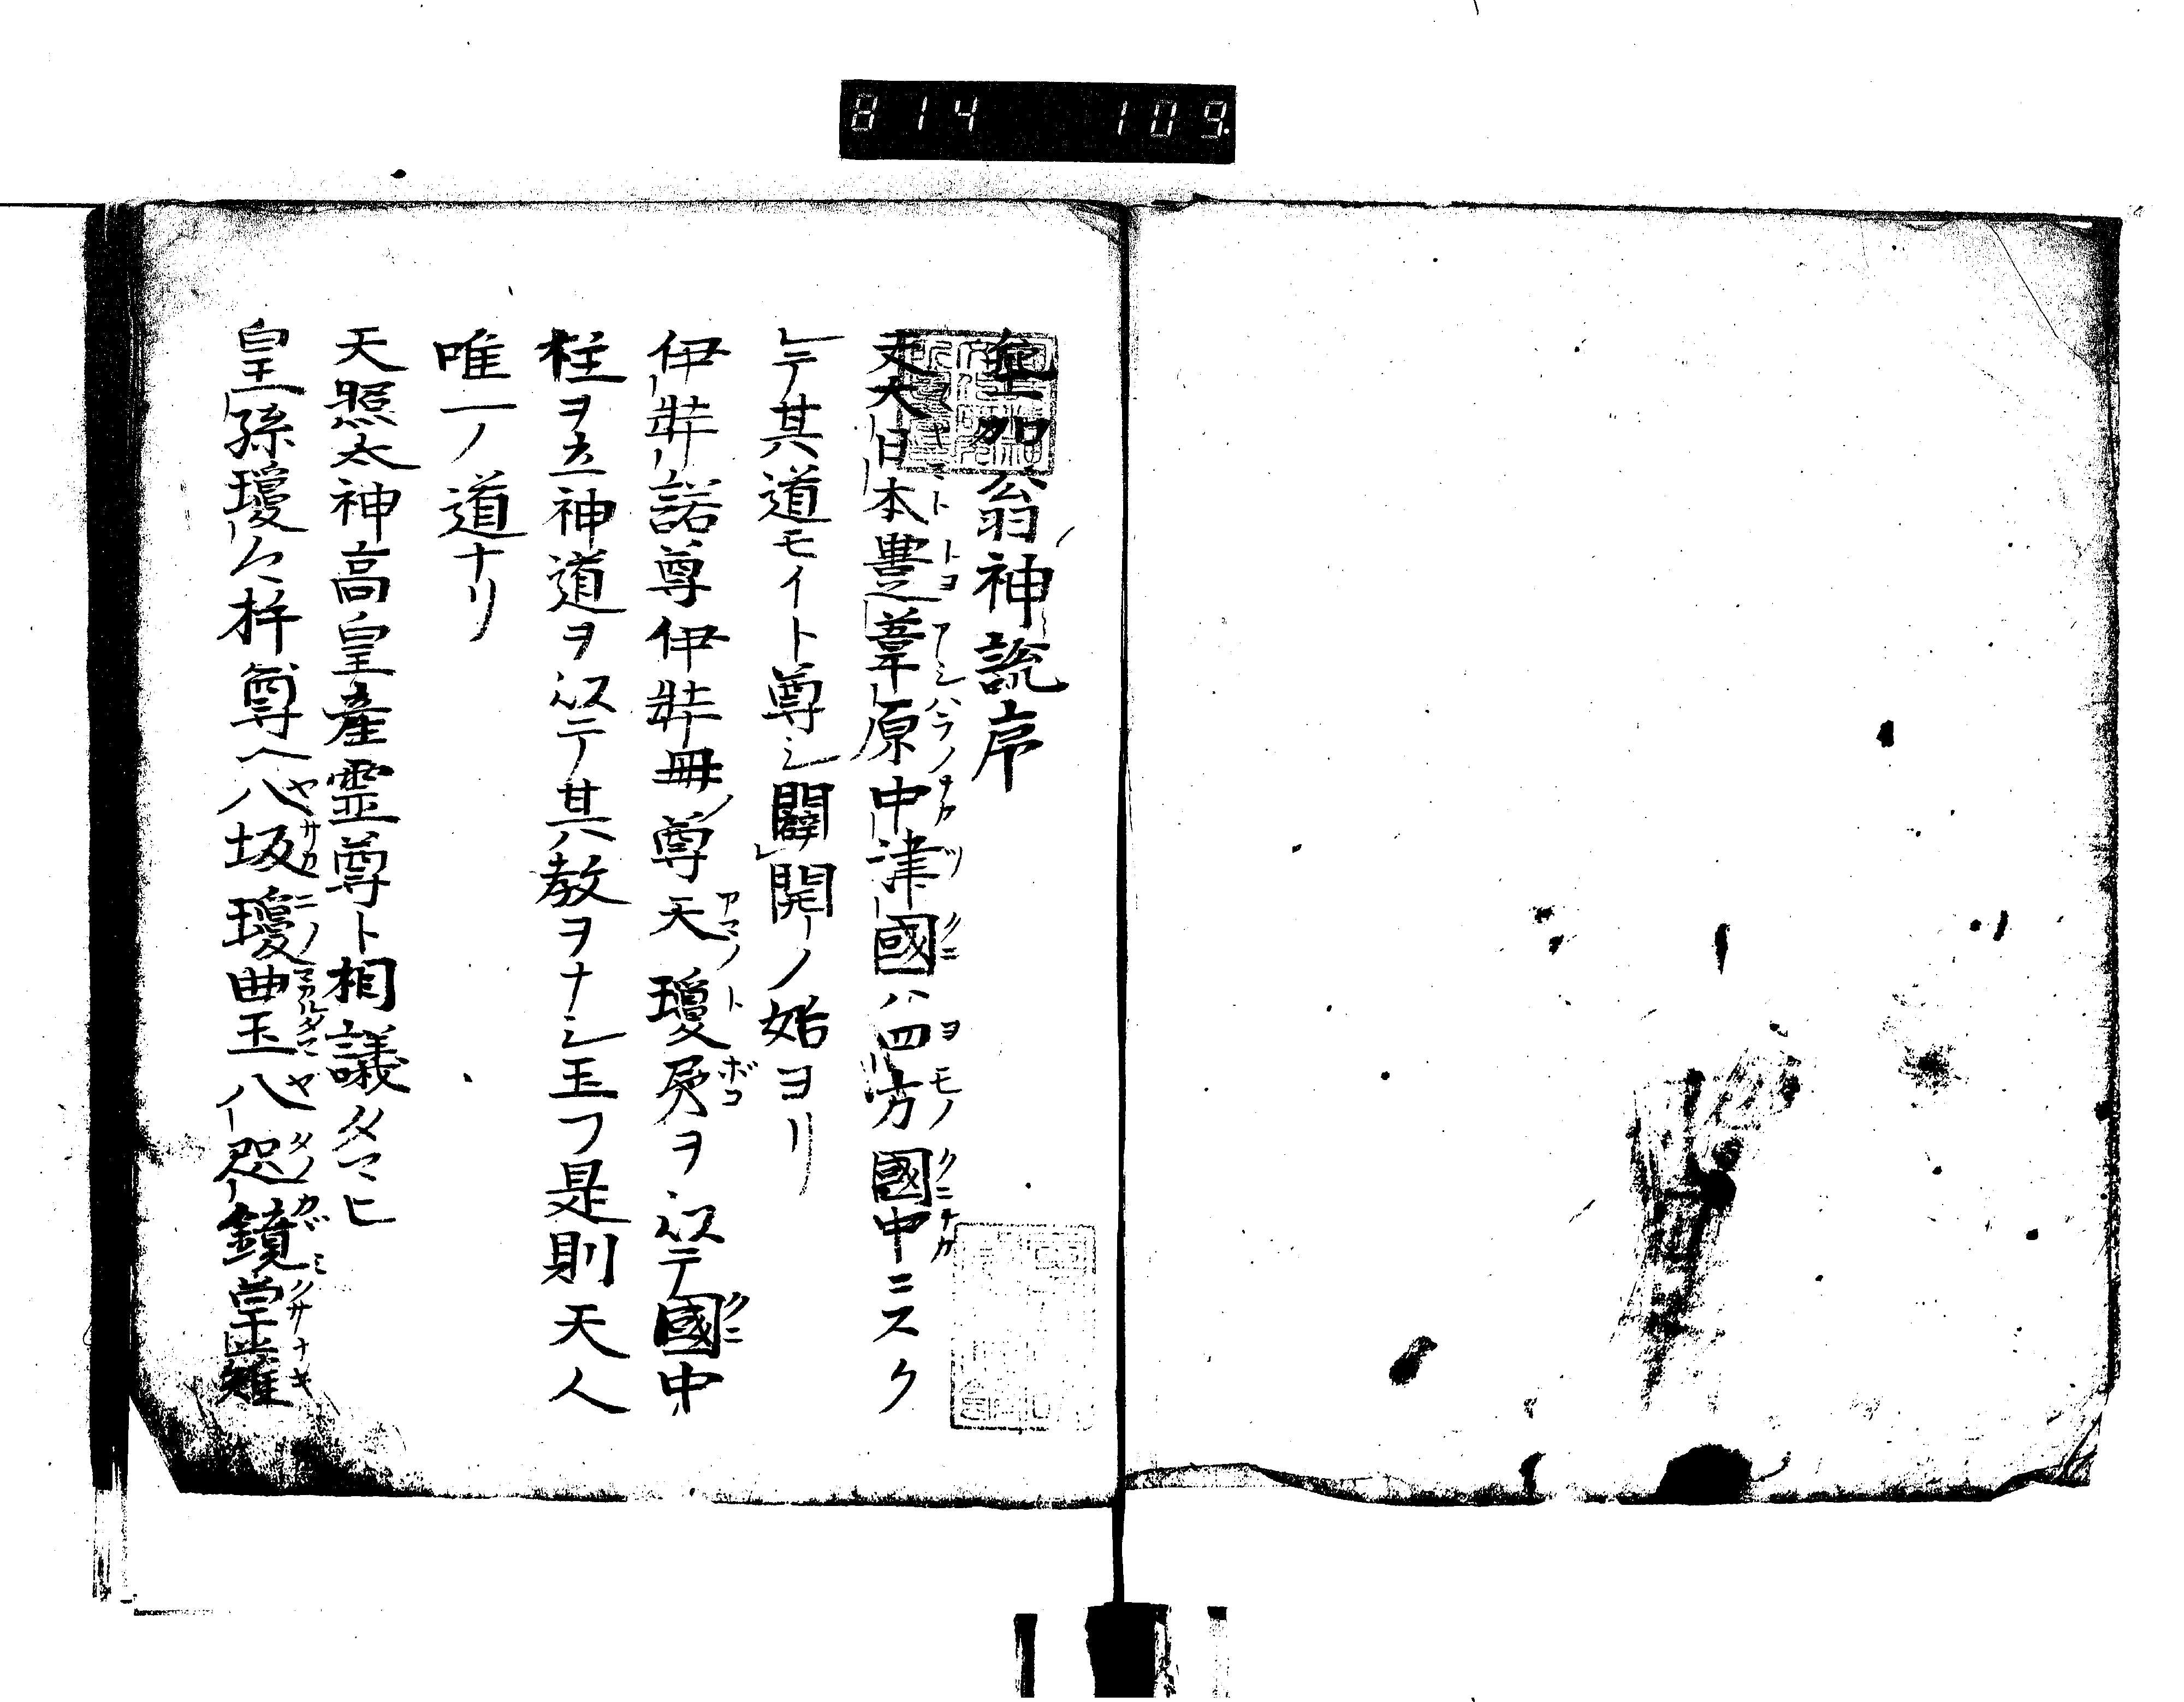 814 109.
垂加翁神説序
夫大日本豊葦原中津國ハ四方國中ニスク
レテ其道モイト尊シ闢開ノ始ヨリ
伊弉諾尊伊弉冊ノ尊天瓊矛ヲ以テ國中
柱ヲ立神道ヲ以テ其教ヲナシ玉フ是則天人
唯一ノ道ナリ
天照太神高皇産霊尊ト相議タマヒ
皇孫瓊々杵尊ヘ八坂瓊曲玉八咫鏡草薙